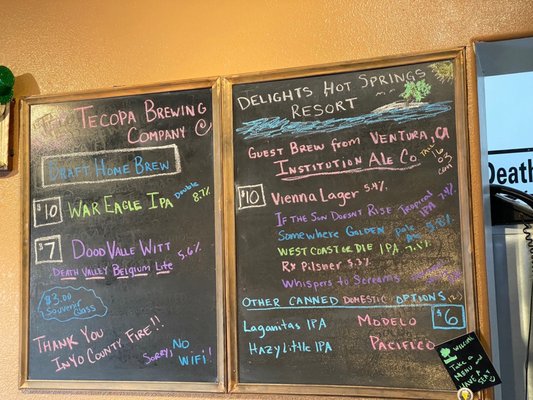 The Tecopa Brewing
Company
Draft Home Brew
$10
War Eagle IPA
Double
8.7%
$7
Dood Valle Witt
5.6%
Death Valley Belgium Lite
$3.00
Souvenir
Glass
Thank You
Inyo County Fire!!
Sorry, No
WiFi!
Delights Hot Springs
Resort
Guest Brew from Ventura, CA
Institution Ale Co.
Tall
16
oz
can
$10
Vienna Lager 5.4%
If the Sun Doesn't Rise Tropical
IPA 7.4%
Somewhere Golden Pale
5.8%
West Coast or Die IPA 7.1%
Rx Pilsner 5.3%
Whispers to Screams
Other Canned Domestic Options
$6
Lagunitas IPA
Modelo
Hazy Little IPA
Pacifico
Welcome
Take a
Menu and
Have a
Seat
Death